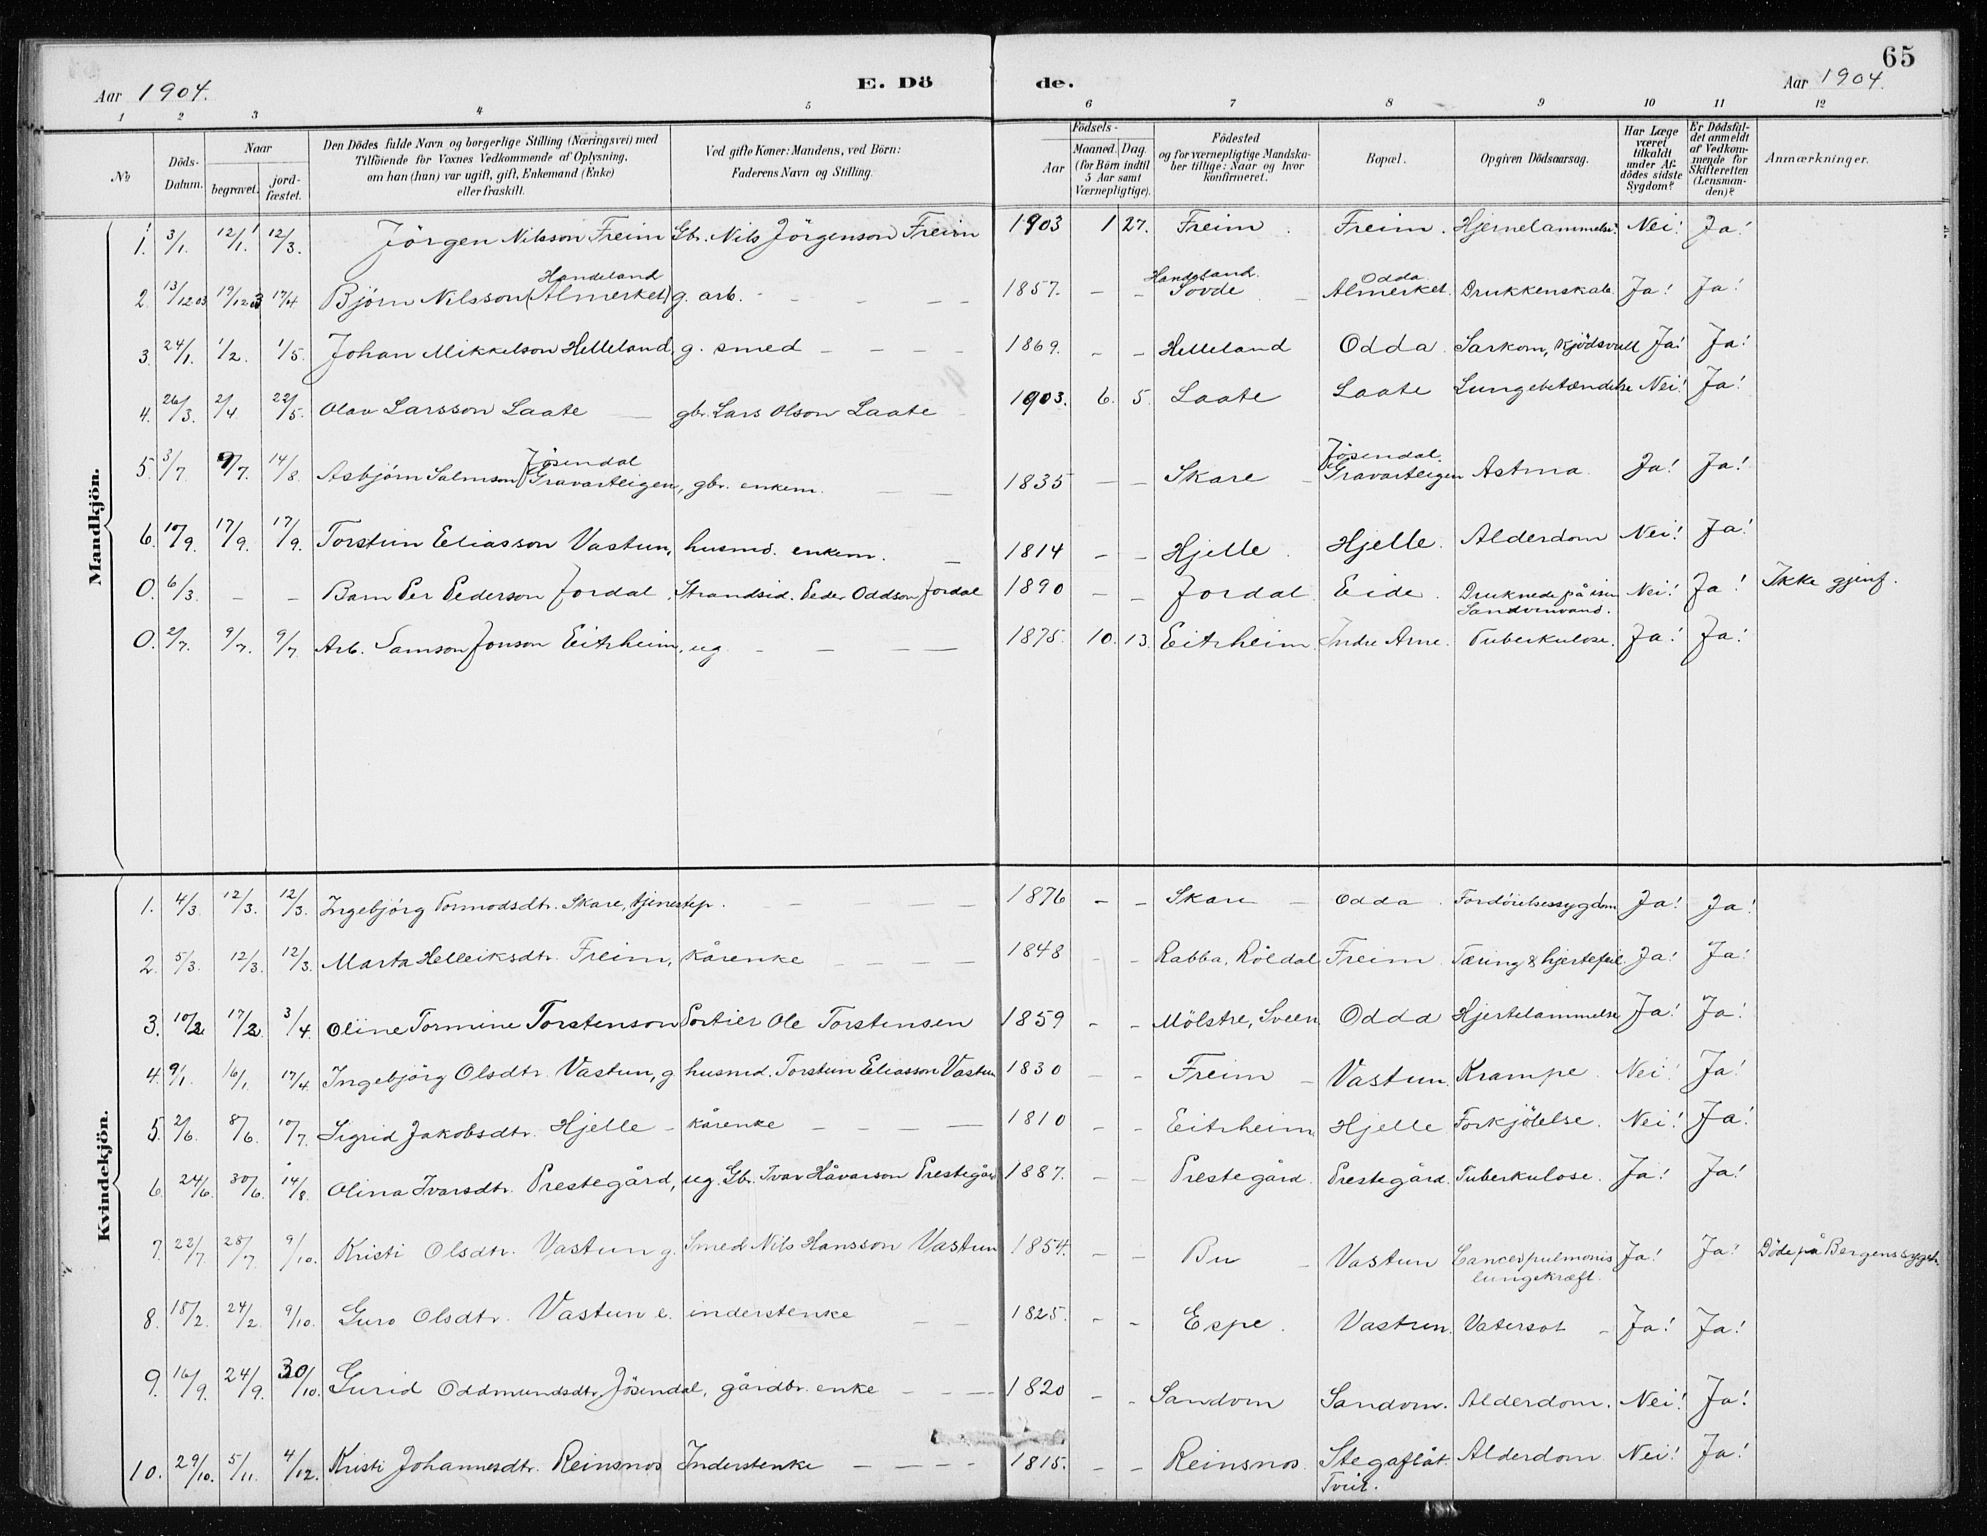 65
Aar 1904. E. Dö de. Aar 1904.
1 2 3 4 5 6 7 8 9 10 11 12
No Döds-Datum. Naar begravet. jord-fæstet. Den Dödes fulde Navn og borgerlige Stilling (Næringsvei) med Tilföiende for Voxnes Vedkommende af Oplysning, om han (hun) var ugift, gift, Enkemand (Enke) eller fraskilt. Ved gifte Koner: Mandens, ved Börn: Faderens Navn og Stilling. Födsels- Aar Maaned. Dag. (for Börn indtil 5 Aar samt Værnepligtige). Födested og for værnepligtige Mandskaber tillige: Naar og hvor konfirmeret. Bopæl. Opgiven Dödsaarsag. Har Læge været tilkaldt under Afdödes sidste Sygdom? Er Dödsfaldet anmeldt af Vedkommende for Skifteretten (Lensmanden)? Anmærkninger.
Mandkjön.
1. 3/1. 12/1. 12/3. Jörgen Nilsson Freim Gbr. Nils Jörgenson Freim 1903 1 27. Freim. Freim. Hjernelammelse. Nei! Ja!
2. 13/12 03 19/12 03 17/4 Björn Nilsson (Handeland Almerket) g. arb. - - - - 1857. - - Handeland. Sovde - Odda Almerket. Drukkenskab. Ja! Ja!
3. 24/1. 1/2. 1/5. Johan Mikkelson Helleland, g. smed - - - - 1869. - - Helleland Odda Sarkom, kjödsvull Ja! Ja!
4. 26/3. 2/4 22/5. Olav Larsson Laate - gbr. Lars Olson Laate 1903. 6. 5. Laate Laate Lungebetændelse Nei! Ja!
5. 3/7. 9/7. 14/8 Asbjörn Salmson (Jösendal Gravarteigen, gbr. enkem. - - 1835 - - Skare - Jösendal. Gravarteigen Astma. Ja! Ja!
6. 10/9. 17/9. 17/9. Torstein Eliasson Vastun, husmd. enkem. - 1814 - - Hjelle. Hjelle. Alderdom Nei! Ja!
0. 6/3. - - Barn Per Pederson Jordal. Strandsid. Peder Oddson Jordal 1890 - - Jordal. Eide. Druknede på isen Sandvinvand. Nei! Ja! Ikke gjenf.
0. 2/7. 9/7. 9/7 Arb. Samson Jonson Eitrheim, ug - - - - 1875. 10. 13. Eitrheim. Indre Arne. Tuberkulose. Ja! Ja!
Kvindekjön.
1. 4/3 12/3. 12/3. Ingebjörg Tormodsdtr. Skare, tjenestep. - - - - 1876 - - Skare - Odda. Fordöielsessygdom Ja! Ja!
2. 5/3. 12/3. 12/3. Marta Helleiksdtr. Freim, kårenke - - - - 1848 - - Rabba, Röldal Freim. Tæring & hjertefeil. Ja! Ja!
3. 10/2 17/2 3/4. Oline Tormine Torstenson Portier Ole Torstensen 1859 - - Mölstre, Sveen Odda Hjertelammelse Ja! Ja!
4. 9/1. 16/1. 17/4 Ingebjörg Olsdtr. Vastun, g. husmd. Torstein Eliasson Vastun 1830 - - Freim - Vastun. Krampe. Nei! Ja!
5. 2/6. 8/6. 10/7. Sigrid Jakobsdtr. Hjelle - kårenke - - - - 1810 - - Eitrheim Hjelle Forkjölelse. Nei! Ja!
6. 24/6. 30/6. 14/8. Olina Ivarsdtr. Prestegård, ug. Gbr. Ivar Håvarson Prestegård 1887. - - Prestegård. Prestegård. Tuberkulose. Ja! Ja!
7. 22/7 28/7 9/10. Kristi Olsdtr. Vastun g. Smed Nils Hansson Vastun 1854. - - Bu - Vastun Cancer pulmonis lungekræft. Ja! Ja! Döde på Bergens sygeh.
8. 18/2. 24/2. 9/10. Guro Olsdtr. Vastun e. inderstenke - - 1825. - - Espe. Vastun. Vatersot - Ja! Ja!
9. 16/9. 24/9. 30/10. Gurid Oddmundsdtr. Jösendal, gårdbr. enke - - - 1820 - - Sandvin Sandvin. Alderdom. Nei! Ja!
10. 29/10. 5/11. 4/12. Kristi Johannesdtr. Reinsnos Inderstenke - - - - 1815. - - Reinsnos. Stegaflåt. Tveit. Alderdom Nei! Ja!